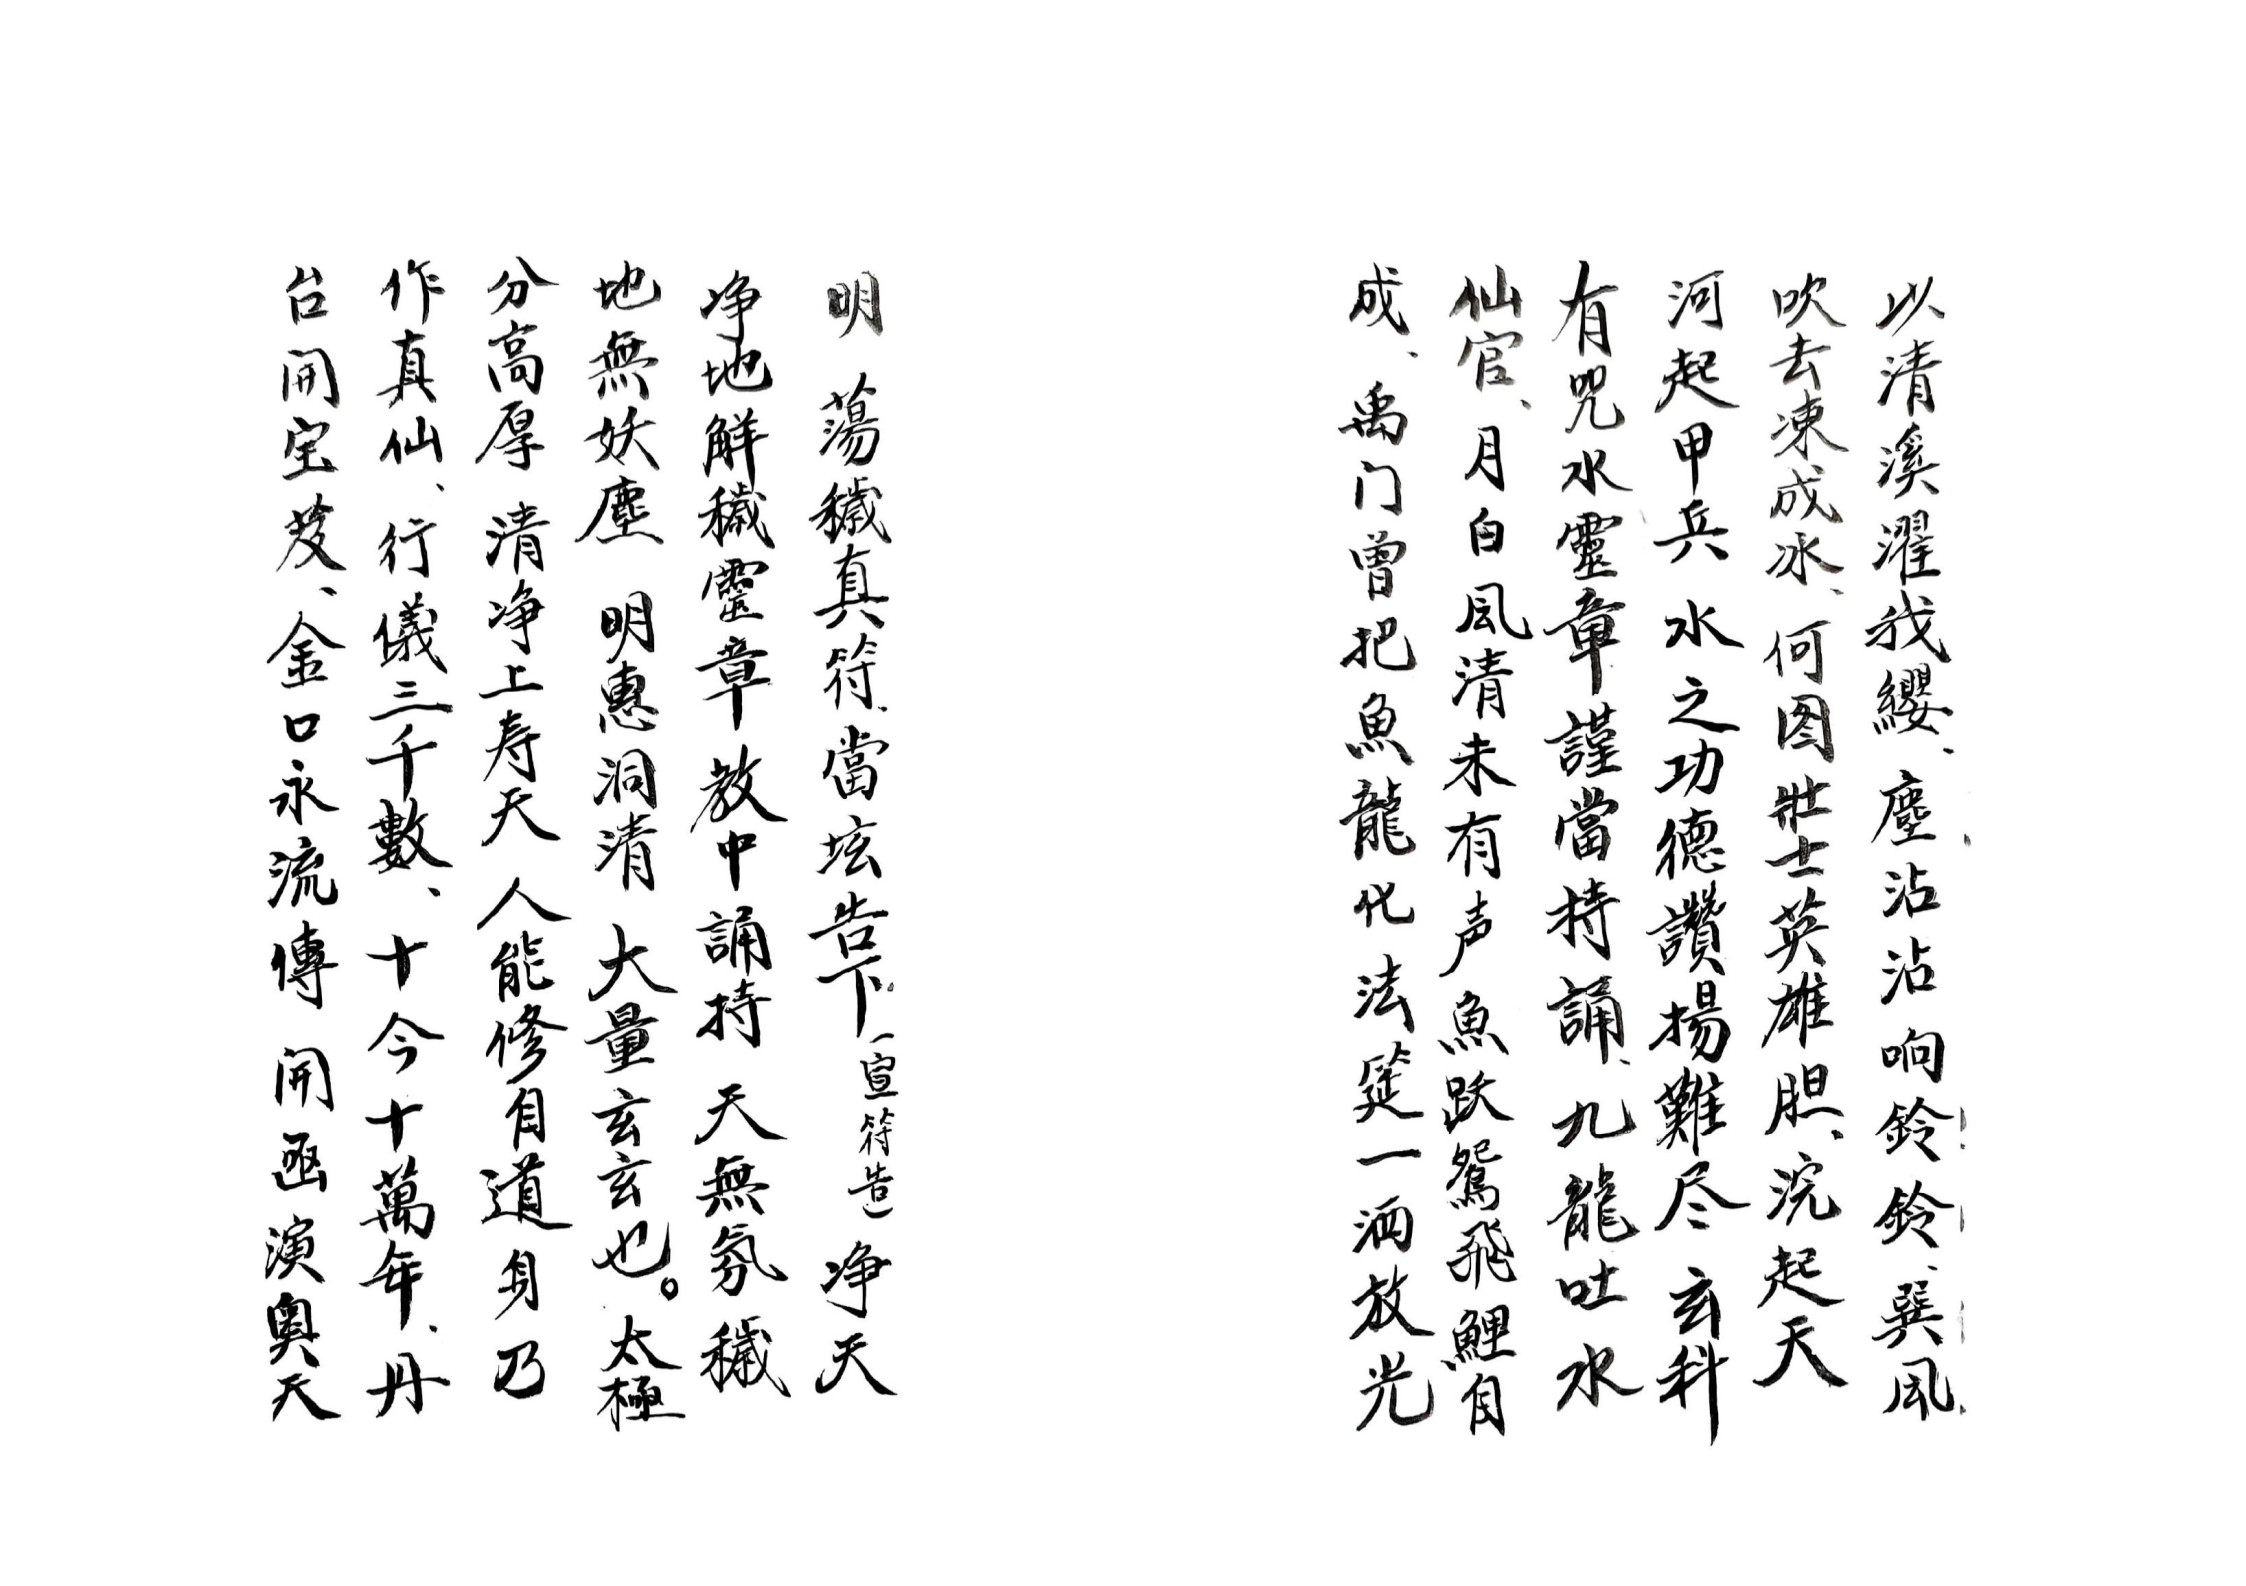 以清溪濯我纓、塵沾沾响鈴鈴、巽风
吹去凍成冰、何图壯士英雄胆、浣起天
河起甲兵 水之功德讚揚難尽 玄科
有咒水靈章謹當持誦、九龍吐水
仙官、月白风清未有声魚跃鴛飛鯉自
成、禹门曾把魚龍化法筵一洒放光
明 蕩穢真符、當坛告下（宣符告） 净天
净地解穢靈章教中誦持 天無氛穢
地無妖塵 明惠洞清 大量玄玄也。太極
分高厚 清净上寿天 人能修自道身乃
作真仙、行儀三千數、十今十萬年、丹
台開宝笈、金口永流傳 開函演奥天